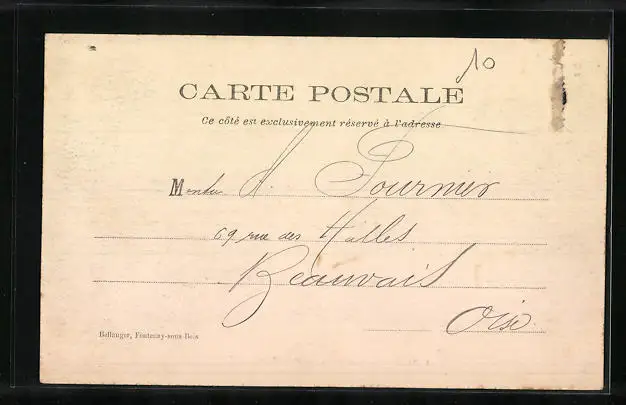 10
CARTE POSTALE
Ce côté est exclusivement réservé à l'adresse
M H. Fournier
69 rue des Halles
Beauvais
Oise
Bellanger, Fontenay-sous-Bois